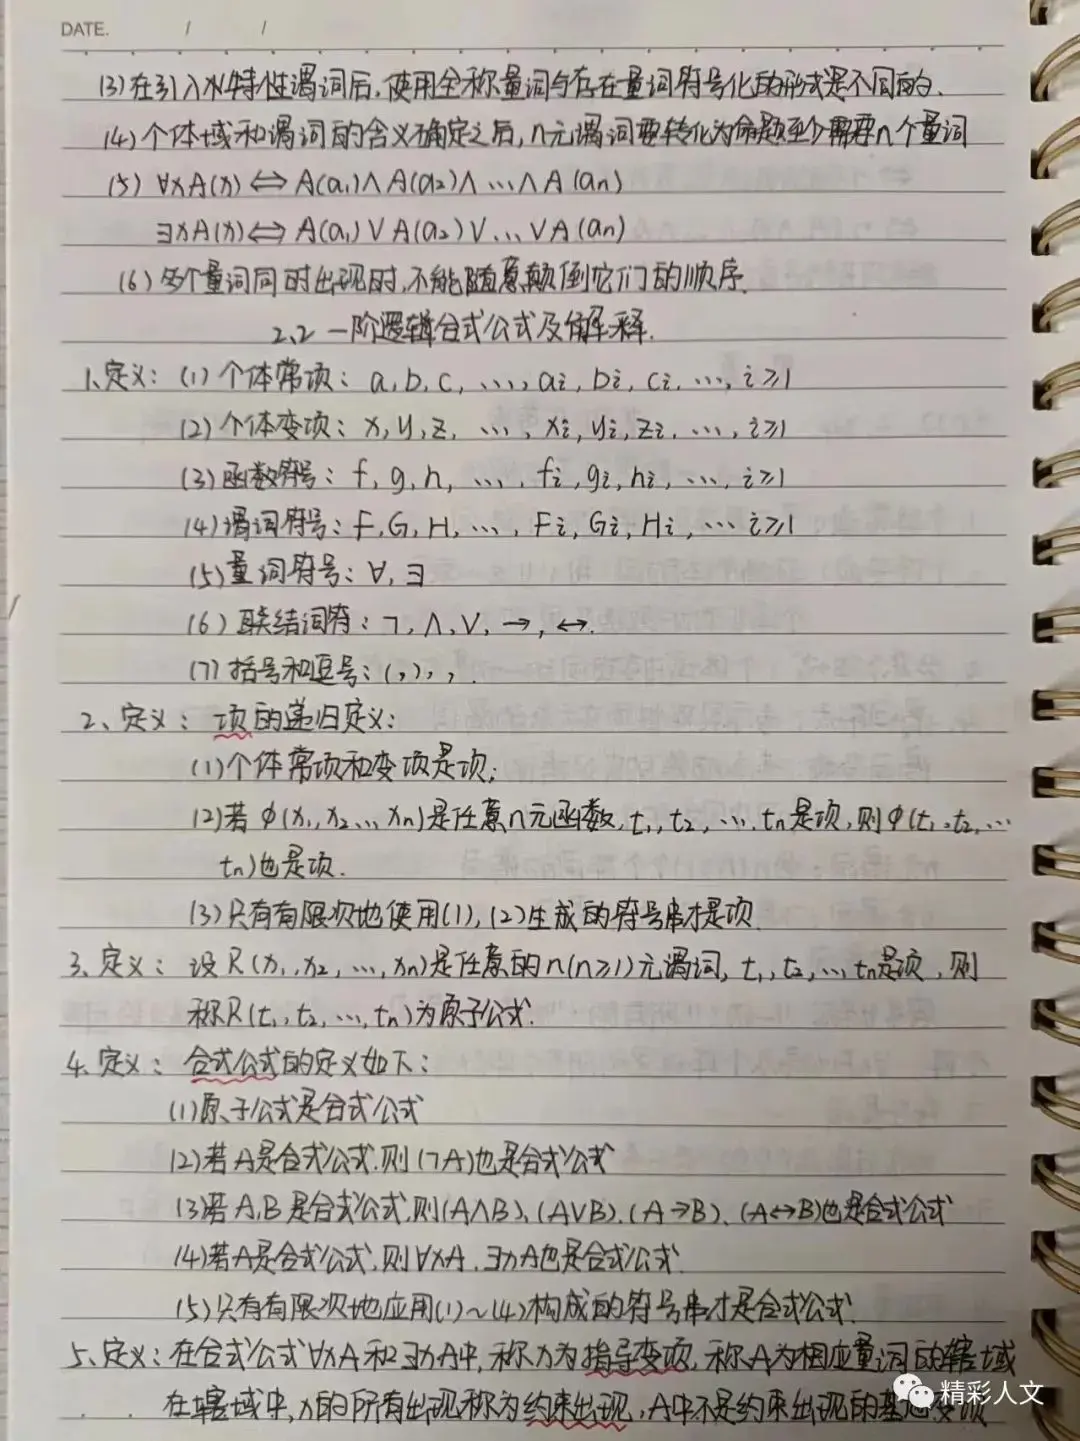 DATE. / /
(3)在引入特性谓词后,使用全称量词与存在量词符号化的形式是不同的.
(4)个体域和谓词的含义确定之后,n元谓词要转化为命题至少需要n个量词
(5) ∀xA(x)⇔A(a₁)∧A(a₂)∧…∧A(aₙ)
∃xA(x)⇔A(a₁)∨A(a₂)∨…∨A(aₙ)
(6)多个量词同时出现时,不能随意颠倒它们的顺序.
2.2 一阶逻辑合式公式及解释.
1.定义:(1)个体常项:a,b,c,…,aᵢ,bᵢ,cᵢ,…,i≥1
(2)个体变项:x,y,z,…,xᵢ,yᵢ,zᵢ,…,i≥1
(3)函数符号:f,g,h,…,fᵢ,gᵢ,hᵢ,…,i≥1
(4)谓词符号:F,G,H,…,Fᵢ,Gᵢ,Hᵢ,…i≥1
(5)量词符号:∀,∃
(6)联结词符:¬,∧,∨,→,↔.
(7)括号和逗号:(,),,.
2、定义:项的递归定义:
(1)个体常项和变项是项;
(2)若φ(x₁,x₂…xₙ)是任意n元函数,t₁,t₂,…,tₙ是项,则φ(t₁,t₂,…
tₙ)也是项.
(3)只有有限次地使用(1),(2)生成的符号串才是项.
3、定义:设R(x₁,x₂,…,xₙ)是任意的n(n≥1)元谓词,t₁,t₂,…tₙ是项,则
称R(t₁,t₂,…,tₙ)为原子公式.
4、定义:合式公式的定义如下:
(1)原子公式是合式公式
(2)若A是合式公式,则(¬A)也是合式公式
(3)若A,B是合式公式,则(A∧B)、(A∨B)、(A→B)、(A↔B)也是合式公式
(4)若A是合式公式,则∀xA、∃xA也是合式公式.
(5)只有有限次地应用(1)~(4)构成的符号串才是合式公式.
5、定义:在合式公式∀xA和∃xA中,称x为指导变项,称A为相应量词的辖域
在辖域中,x的所有出现称为约束出现,A中不是约束出现的其他变项
精彩人文